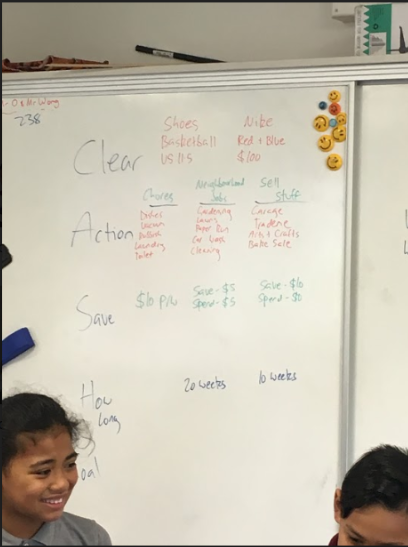 Mr Wong
238
Clear
Shoes
Basketball
US 11.5
Nike
Red + Blue
$100
Action
Chores
Dishes
Vacuum
Rubbish
Laundry
Toilet
Neighbourhood
Jobs
Gardening
Lawns
Paper Run
Car Wash
Cleaning
Sell
Stuff
Garage
Trademe
Arts + Crafts
Bake Sale
Save
$10 p/w
Save - $5
Spend - $5
Save - $10
Spend - $0
How
Long
20 weeks
10 weeks
oal